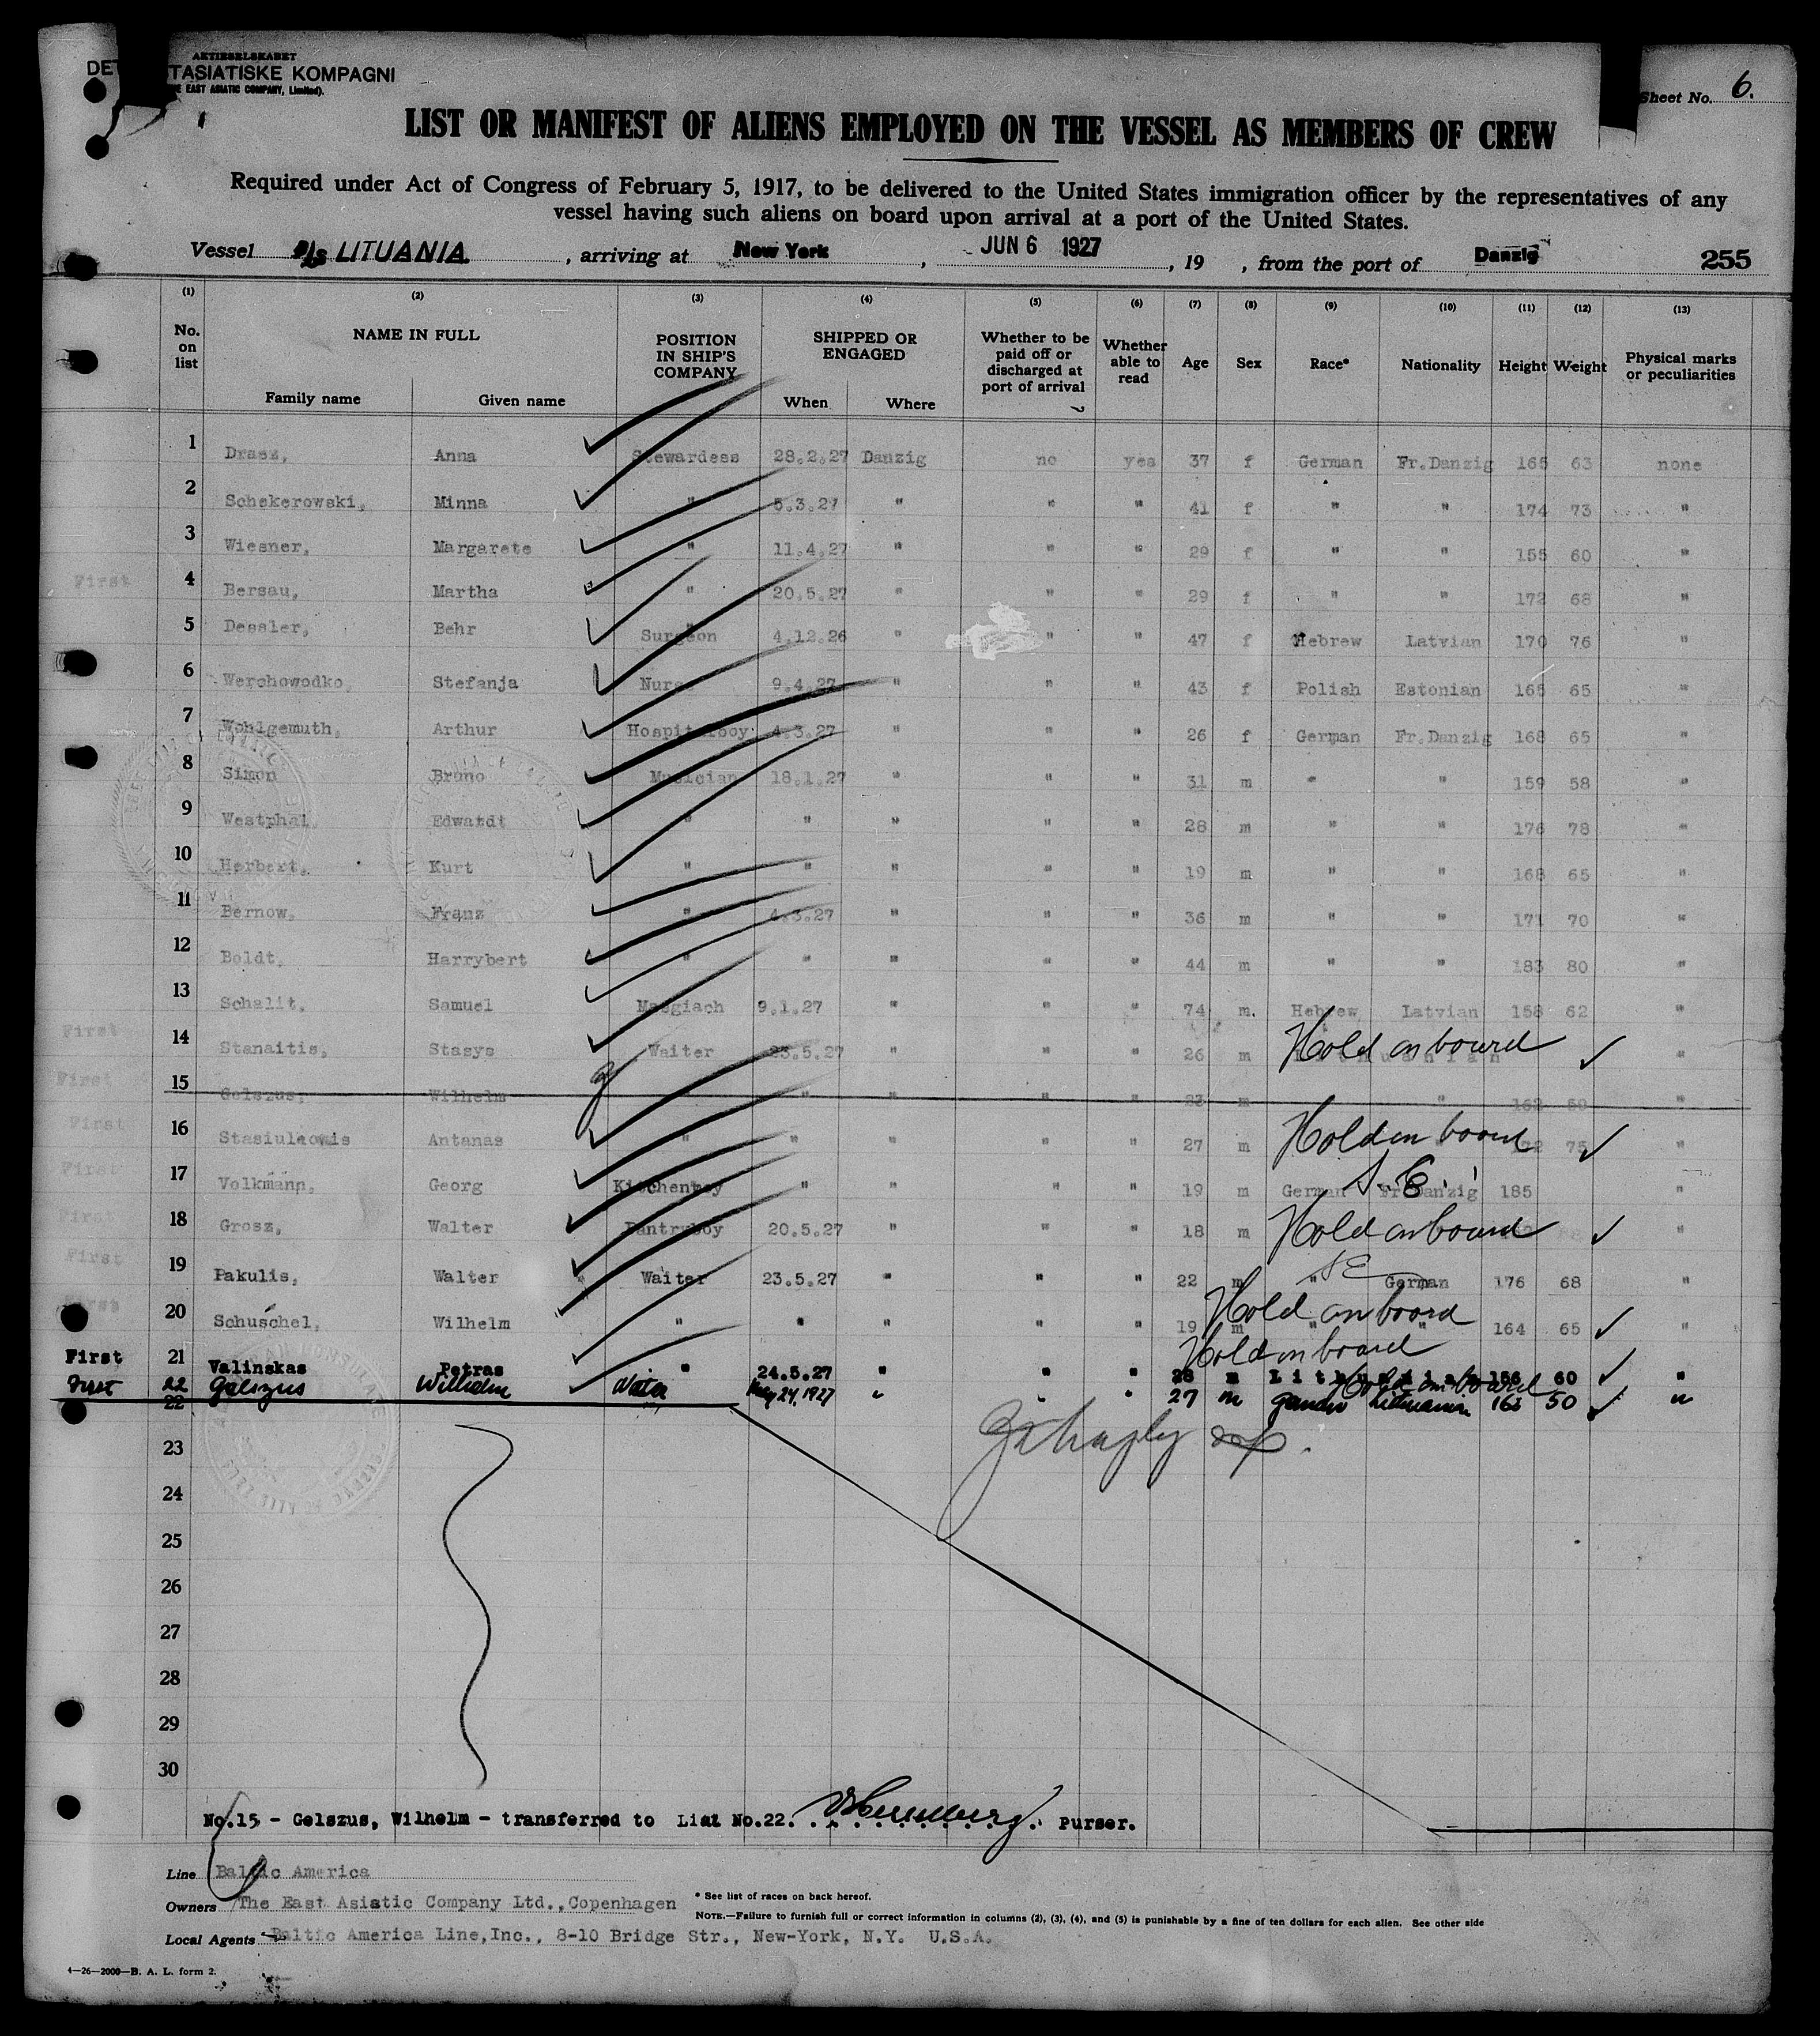 AKTIESELSKABET
DET TASIATISKE KOMPAGNI
EAST ASIATIC COMPANY, Limited).
Sheet No. 6.
LIST OR MANIFEST OF ALIENS EMPLOYED ON THE VESSEL AS MEMBERS OF CREW
Required under Act of Congress of February 5, 1917, to be delivered to the United States immigration officer by the representatives of any
vessel having such aliens on board upon arrival at a port of the United States.
Vessel s/s LITUANIA , arriving at New York , JUN 6 1927 , 19 , from the port of Danzig 255
(1) (2) (3) (4) (5) (6) (7) (8) (9) (10) (11) (12) (13)
No. on list NAME IN FULL Family name Given name POSITION IN SHIP'S COMPANY SHIPPED OR ENGAGED When Where Whether to be paid off or discharged at port of arrival Whether able to read Age Sex Race* Nationality Height Weight Physical marks or peculiarities
1 Drasz, Anna Stewardess 28.2.27 Danzig no yes 37 f German Fr.Danzig 165 63 none
2 Schekerowski, Minna " 5.3.27 " " " 41 f " " 174 73 "
3 Wiesner, Margarete " 11.4.27 " " " 29 f " " 155 60 "
First 4 Bersau, Martha " 20.5.27 " " " 29 f " " 172 68 "
5 Dessler, Behr Surgeon 4.12.26 " " " 47 f Hebrew Latvian 170 76 "
6 Werchowodko, Stefanja Nurse 9.4.27 " " " 43 f Polish Estonian 165 65 "
7 Wohlgemuth, Arthur Hospitalboy 4.3.27 " " " 26 f German Fr.Danzig 168 65 "
8 Simon Bruno Musician 18.1.27 " " " 31 m " " 159 58 "
9 Westphal, Edwatdt " " " " " 28 m " " 176 78 "
10 Herbert, Kurt " " " " " 19 m " " 168 65 "
11 Bernow, Franz " 4.3.27 " " " 36 m " " 171 70 "
12 Boldt, Harrybert " " " " " 44 m " " 183 80 "
13 Schalit, Samuel Masgiach 9.1.27 " " " 74 m. Hebrew Latvian 158 62 "
First 14 Stanaitis, Stasys Waiter 23.5.27 " " " 26 m Hold on board "
First 15 Gelszus, Wilhelm " " " " " 23 m " 162 50 "
First 16 Stasiuleowis Antanas " " " " " 27 m Hold on board 172 75 "
First 17 Volkmann, Georg Kitchenboy " " " " 19 m German Fr.Danzig S.E. 185 "
First 18 Grosz, Walter Pantryboy 20.5.27 " " " 18 m Hold on board "
First 19 Pakulis, Walter Waiter 23.5.27 " " " 22 m " SE German 176 68 "
First 20 Schuschel, Wilhelm " " " " " 19 m Hold on board " " 164 65 "
First 21 Valinskas Petras " 24.5.27 " " " 28 m Hold on board Lithuanian 166 60 "
First 22 Gelszus Wilhelm Waiter May 24, 1927 " " " 27 m German Lithuanian Hold on board 163 50 "
22
23
24
25
26
27
28
29
30
No.15 - Gelszus, Wilhelm - transferred to List No.22. Purser.
Line Baltic America
Owners The East Asiatic Company Ltd., Copenhagen
* See list of races on back hereof.
NOTE.—Failure to furnish full or correct information in columns (2), (3), (4), and (5) is punishable by a fine of ten dollars for each alien. See other side
Local Agents Baltic America Line, Inc., 8-10 Bridge Str., New-York, N.Y. U.S.A.
4—26—2000—B. A. L. form 2.